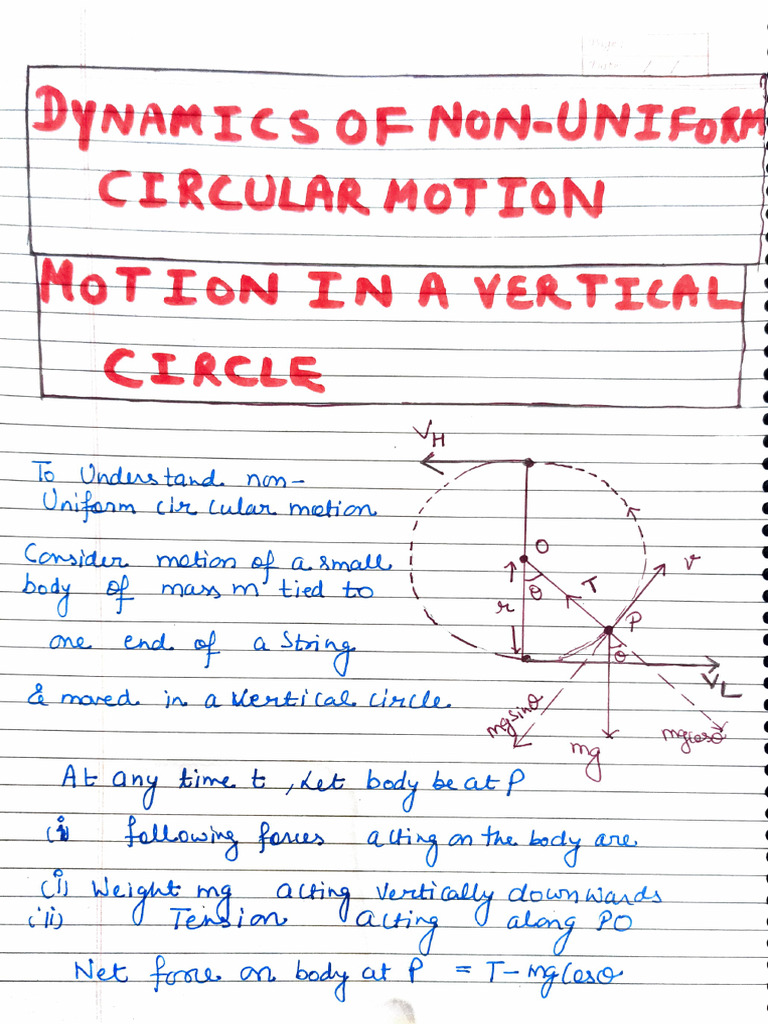 DYNAMICS OF NON-UNIFORM
CIRCULAR MOTION
MOTION IN A VERTICAL
CIRCLE
To Understand non-
Uniform circular motion
Consider motion of a small
body of mass m tied to
one end of a String
& moved in a vertical circle
VH
O
θ
r
T
v
P
θ
VL
mgsinθ
mg
mgcosθ
At any time t, Let body be at P
(i) following forces acting on the body are
(i) Weight mg acting vertically downwards
(ii) Tension acting along PO
Net force on body at P = T-mgCosθ